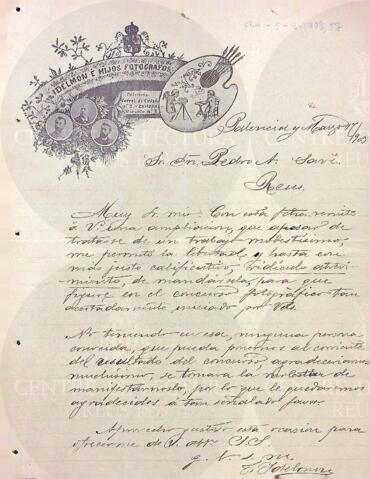 IDELMON É HIJOS FOTÓGRAFOS
Palencia y Marzo 17/903
Sr. Dn. Pedro A. Savé
Reus.
Muy Sr. mio: Con esta fecha remito
á V. una ampliacion, que apesar de
tratarse de un trabajo modestisimo,
me permito la libertad y hasta con
más justo calificativo, ridículo atrevi-
miento, de mandársela, para que
figure en el concurso fotográfico tan
acertadamente iniciado por Vds.
No teniendo en esa, ninguna persona
conocida, que pueda ponernos al corriente
del resultado del concurso, agradeceriamos
muchisimo, se tomara la molestia de
manifestarnoslo, por lo que le quedaremos
agradecidos á tan señalado favor.
Aprovecho gustoso esta ocasión para
ofrecerme de V. afft. S.S.
q. b. s. m.
Idelmon
CENTRE
REUS